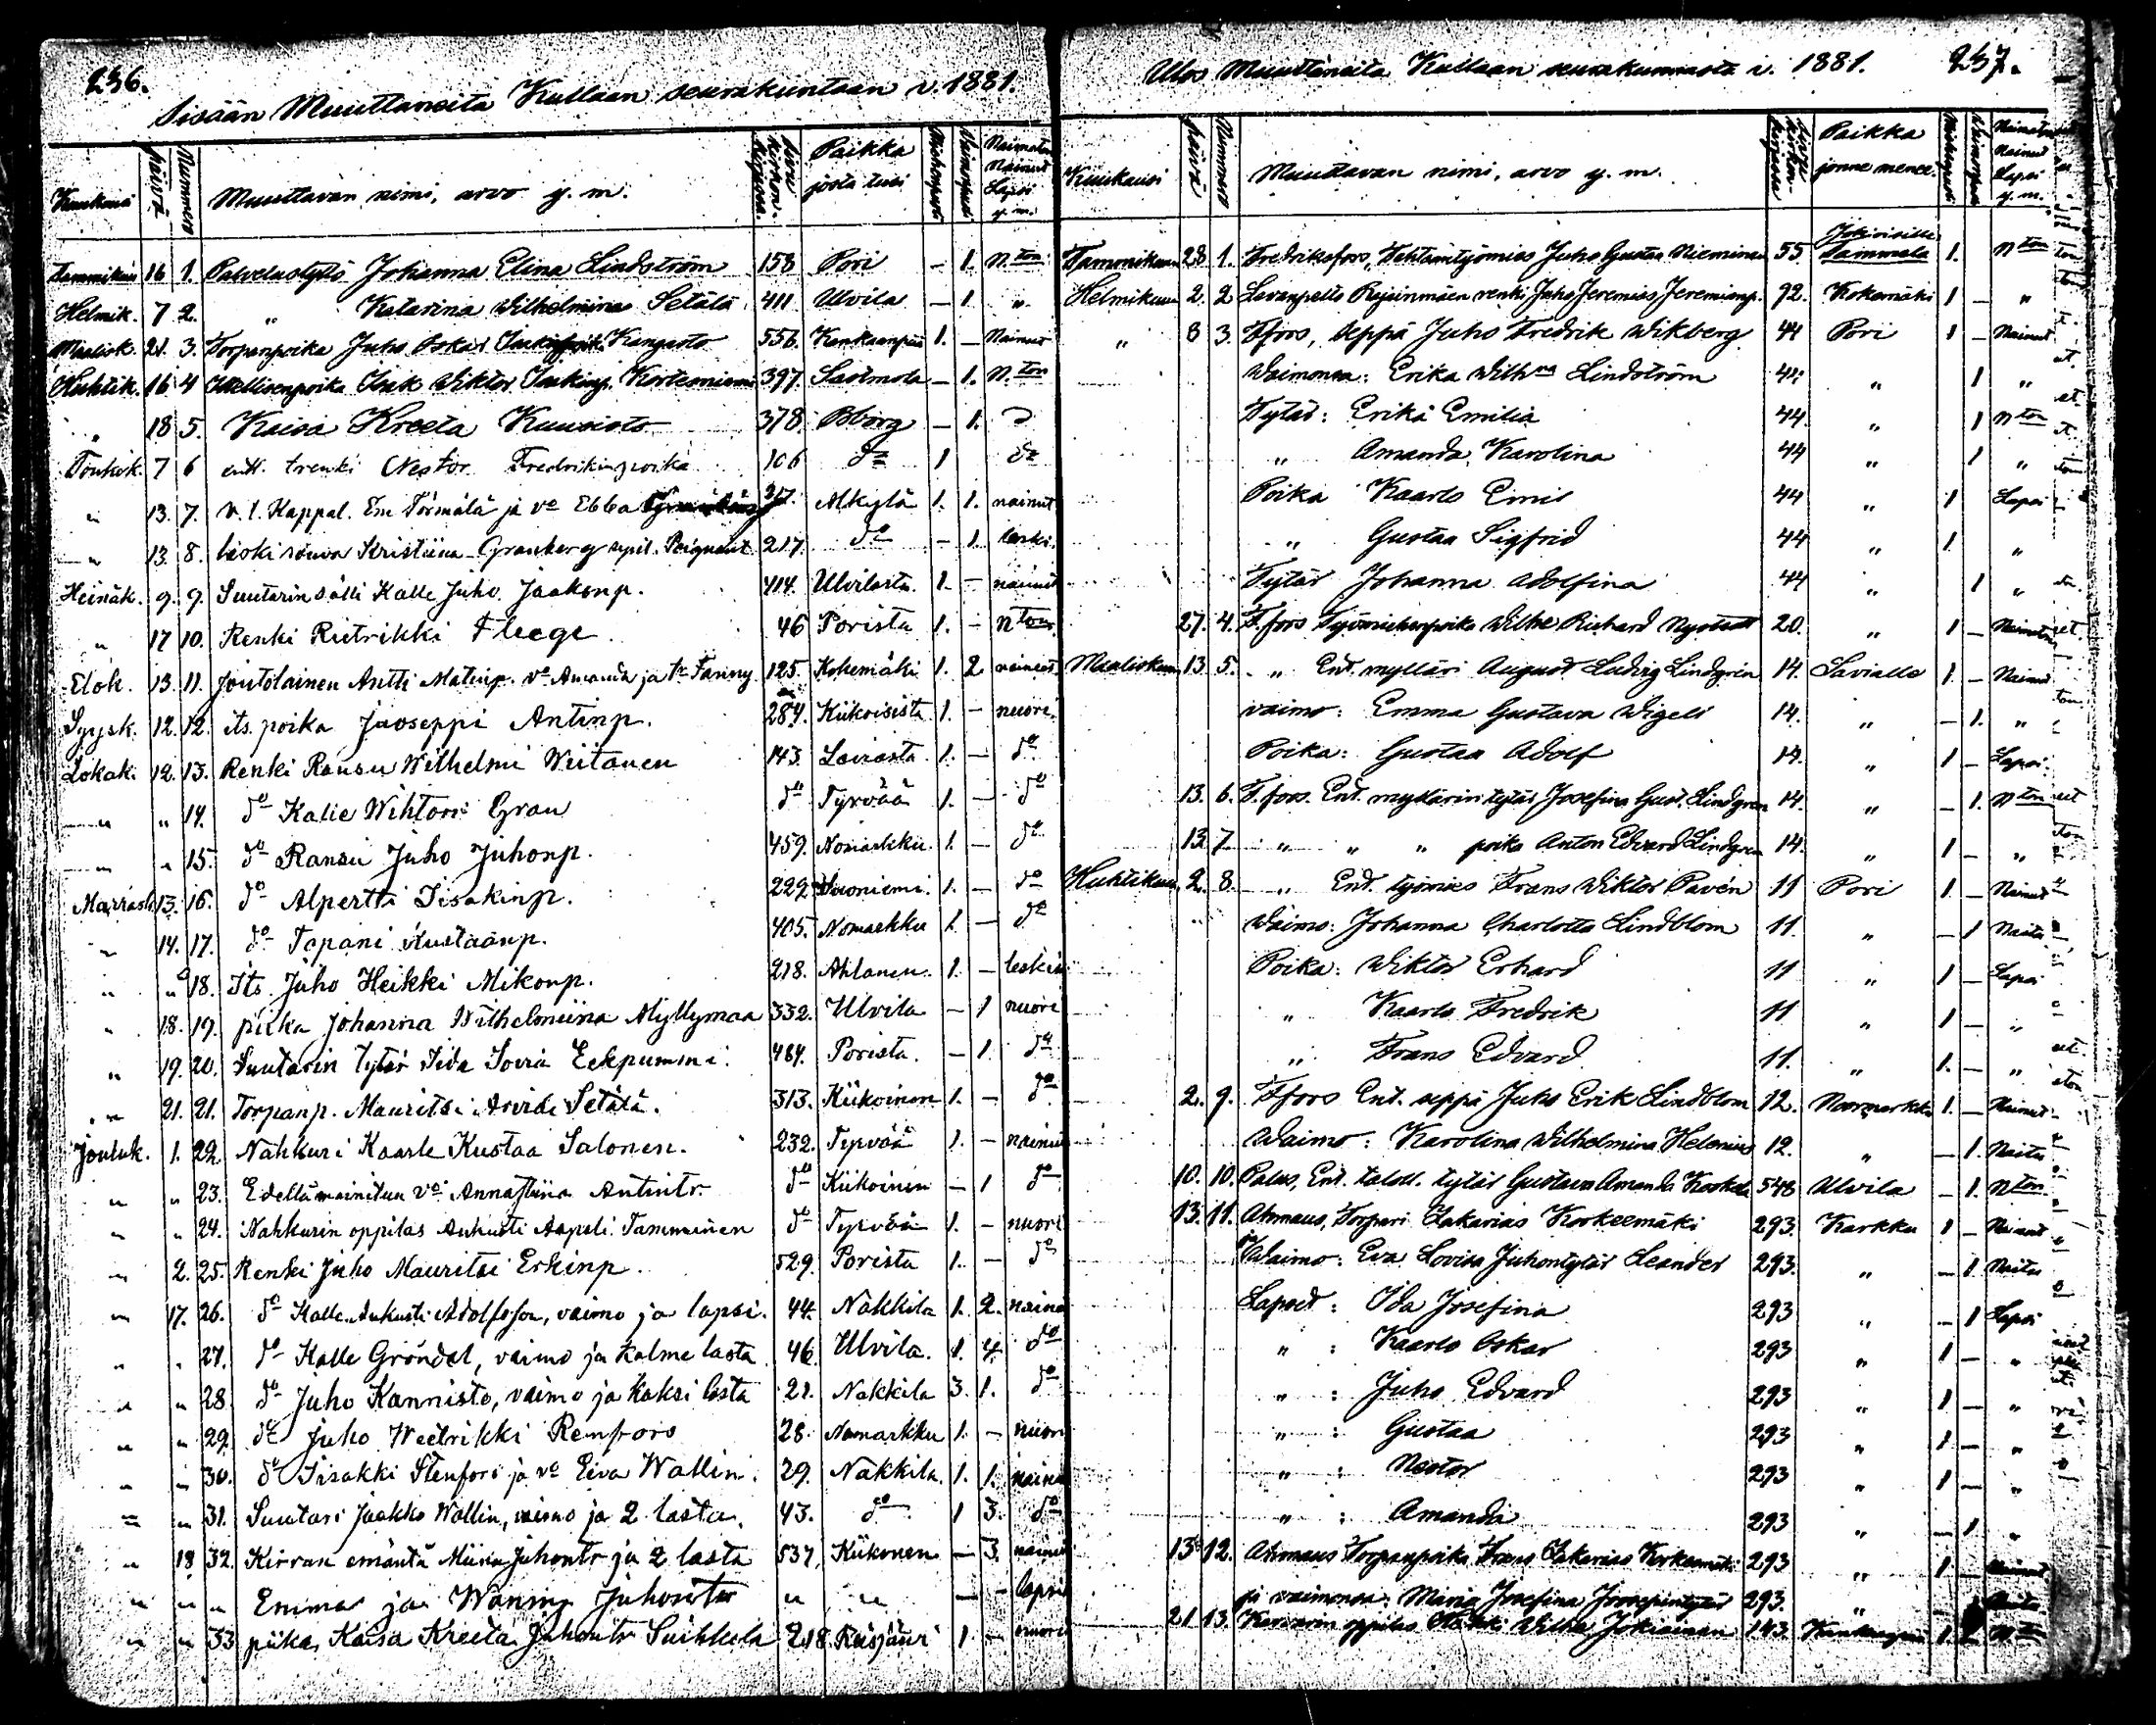 236.
Sisään Muuttaneita Kullaan seurakuntaan v. 1881.
Kuukausi päivä Nummero Muuttavan nimi, arvo y. m. Sivu kirkon-kirjassa. Paikka josta tuli Miehenpuoli Vaimonpuoli Naimaton Nainut Lapsi y. m.
Tammikuu 16 1. Palvelustyttö Johanna Elina Lindström 158 Pori – 1. N.ton
Helmik. 7 2. " Katarina Wilhelmina Setälä 411 Ulvila – 1 "
Maalisk. 21. 3. Torpanpoika Juho Oskar Kangasto 556. Kankaanpää 1. – Nainut
Huhtik. 16 4 Itsellisenpoika Isak Wiktor Isakinp. Korteniemi 397. Lavia – 1. N.ton
" 18 5. Kaisa Kreeta Kuusisto 378. Bborg – 1. D
Toukok. 7 6 entl. trenki Nestor Fredrikinpoika 106 do 1 do
" 13. 7. v. t. Kappal. Em Törmälä ja vo Ebba 217. Alkylä 1. 1. nainut
" 13. 8. leski rouva Kristiina Granberg 217. do – 1. leski.
Heinäk. 9. 9. Suutarin sälli Kalle Juho Jaakonp. 414. Ulvilasta 1. – nainut
" 17 10. Renki Rietrikki Fleege 46 Porista 1. – nton
Elok. 13. 11. Joutolainen Antti Matinp. vo Amanda ja tr Fanny 125. Kokemäki 1. 2 naineet
Syysk. 12. 12. its. poika Jaoseppi Antinp. 284. Kiikoisista 1. – nuori.
Lokak. 12. 13. Renki Ransu Wilhelmi Wiitanen 143. Laviasta 1. – do
" " 14. do Kalle Wihtori Gran do Tyrvää 1. – do
" " 15. do Ransu Juho Juhonp. 459. Normarkku 1. – do
Marrask. 13. 16. do Alpertti Iisakinp. 222 Suoniemi. 1. – do
" 14. 17. do Tapani Kustaanp. 405. Nomarkku 1. – do
" " 18. Its. Juho Heikki Mikonp. 218. Ahlanen. 1. – leski
" 18. 19. piika Johanna Wilhelmiina Myllymaa 332. Ulvila – 1 nuori
" 19. 20. Suutarin tytär Iida Sovia Eekpummi. 484. Porista. – 1. do
" 21. 21. Torpanp. Mauritsi Arvidi Setälä. 313. Kiikoinen 1. – do
Jouluk. 1. 22. Nahkuri Kaarle Kustaa Salonen. 232. Tyrvää 1. – nainut
" " 23. Edellämainitun vo Anna Stiina Antintr. do Kiikoinen – 1 do
" " 24. Nahkurin oppilas Auhusti Aapeli Tamminen do Tyrvää 1. – nuori
" 2. 25. Renki Juho Mauritsi Erkinp. 529. Porista 1. – do
" 17. 26. do Kalle Aukusti Adolfsson, vaimo ja lapsi. 44. Nakkila 1. 2. naine
" " 27. do Kalle Gröndal, vaimo ja kolme lasta 46. Ulvila. 1. 4. do
" " 28. do Juho Kannisto, vaimo ja kaksi lasta 21. Nakkila 3. 1. do
" " 29. do Juho Weetrikki Renfors 28. Nomarkku 1. – nuori
" " 30. do Iisakki Stenfors ja vo Eiva Wallin. 29. Nakkila. 1. 1. naine
" " 31. Suutari Jaakko Wallin, vaimo ja 2 lasta. 43. do 1 3. do
" 18 32. Kirran emäntä Miina Juhontr ja 2 lasta 537. Kiikonen – 3. nainu
" " " Emma ja Juhontr " " – – lapsi
" " 33 piika Kaisa Kreeta Juhontr Suikkola 218. 1 – nuori
237.
Ulos Muuttaneita Kullaan seurakunnasta v. 1881.
Kuukausi päivä Nummero Muuttavan nimi, arvo y. m. Sivu kirkon-kirjassa Paikka jonne menee. Miehenpuoli Vaimonpuoli Naimaton Nainut Lapsi y. m.
Tammikuu 28 1. Fredriksfors, Tehtaantyömies Juho Gustaa Nieminen 55. Jokioisille Tammela 1. Nton
Helmikuu 2. 2 Levanpelto renki Juho Jeremias Jeremianp. 92. Kokemäki 1 – "
" 8 3. Ffors, Seppä Juho Fredrik Wikberg 44 Pori 1 – Nainut
Waimonsa: Erika Wilhna Lindström 44 " 1 "
Tytär: Erika Emilia 44. " 1 Nton
" Amanda Karolina 44 " 1 "
Poika Kaarlo Emil 44 " 1 Lapsi
" Gustaa Sigfrid 44 " 1. "
Tytär Johanna Adolfina 44 " 1 "
27. 4. F.fors Työmiehenpoika Wilhe Richard Nystedt 20. " 1 –
Maaliskuu 13 5. " Ent. mylläri August Ludvig Lindgren 14. Lavialle 1. – Nainut
vaimo: Emma Gustava Wigell 14. " – 1. "
Poika: Gustaa Adolf 14. " 1 – Lapsi.
13. 6. F.fors. Ent. myllärin tytär Josefina Gust. Lindgren 14. " – 1. Nton
13. 7 " " " poika Anton Edvard Lindgren 14. " 1 – "
Huhtikuu 2. 8. " Ent. työmies Frans Wiktor Pavén 11 Pori 1. – Nainut
Waimo: Johanna Charlotta Lindblom 11. " – 1 Naitu
Poika: Wiktor Erhard 11 " 1 – Lapsi
" Kaarlo Fredrik 11 " 1 – "
" Frans Edvard 11. " 1. – "
2. 9. Ffors Ent. seppä Juho Erik Lindblom 12. Noormarkku 1. – Nainut
Waimo: Karolina Wilhelmina Helenius 12. " – 1. Naitu
10. 10. Palus, Ent. taloll. tytär Gustava Amanda Koskela 548 Ulvila – 1. Nton
13. 11. Ahmaus, Torpari Zakarias Korkeemäki 293. Karkku 1 – Nainut
Waimo: Eva Lovisa Juhontytär Leander 293. " – 1 Naitu
Lapset: Ida Josefina 293 " – 1 Lapsi
" : Kaarlo Oskar 293 " 1 – "
" : Juho Edvard 293 " 1 – "
" : Gustaa 293 " 1 – "
" : Nestor 293 " 1 – "
" : Amanda 293 " – 1 "
13. 12. Ahmaus Torpanpoika Frans Zakarias Korkeemäki 293 " 1 – Nainut
ja vaimonsa: Maria Josefina Joosepintytär 293. " Naitu
21. 13. oppilas Heikki Wilhe Jokiainen 143. Kankaanpää 1